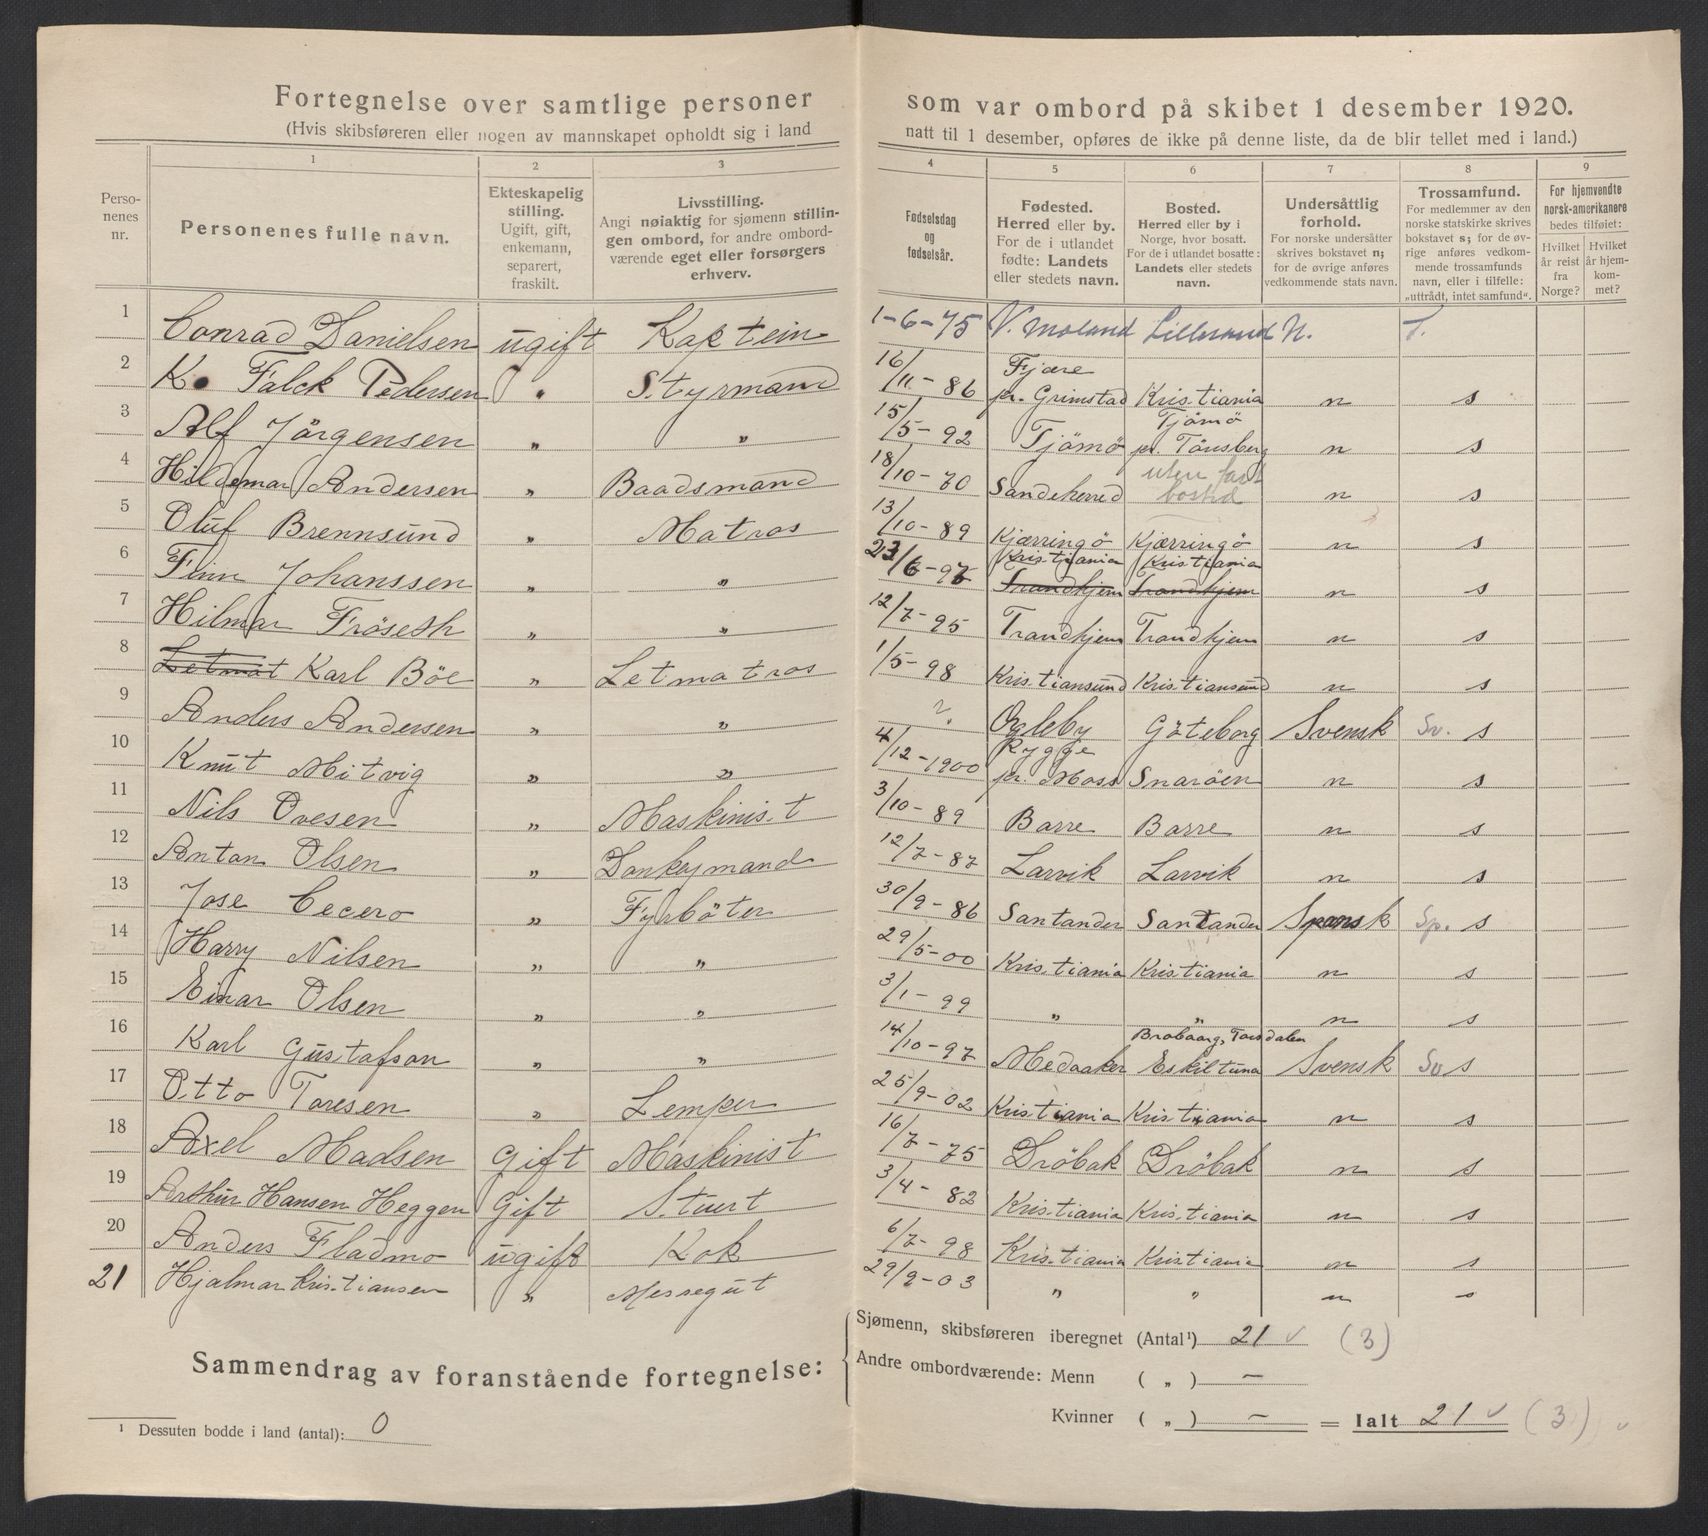 Fortegnelse over samtlige personer som var ombord på skibet 1 desember 1920.
(Hvis skibsføreren eller nogen av mannskapet opholdt sig i land natt til 1 desember, opføres de ikke på denne liste, da de blir tellet med i land.)
1 2 3 4 5 6 7 8 9
Personenes nr.
Personenes fulle navn.
Ekteskapelig stilling. Ugift, gift, enkemann, separert, fraskilt.
Livsstilling. Angi nøiaktig for sjømenn stillingen ombord, for andre ombordværende eget eller forsørgers erhverv.
Fødselsdag og fødselsår.
Fødested. Herred eller by. For de i utlandet fødte: Landets eller stedets navn.
Bosted. Herred eller by i Norge, hvor bosatt. For de i utlandet bosatte: Landets eller stedets navn.
Undersåttlig forhold. For norske undersåtter skrives bokstavet n; for de øvrige anføres vedkommende stats navn.
Trossamfund. For medlemmer av den norske statskirke skrives bokstavet s; for de øvrige anføres vedkommende trossamfunds navn, eller i tilfelle: „uttrådt, intet samfund“.
For hjemvendte norsk-amerikanere bedes tilføiet:
Hvilket år reist fra Norge? Hvilket år hjemkommet?
1 Conrad Danielsen ugift Kaptein 1-6-75 V. Moland Lillesand N. S.
2 K. Falck Pedersen " Styrmand 16/11-86 Fjære pr. Grimstad Kristiania n s
3 Alf Jörgensen " " 15/5-92 Tjömö Tjömö pr. Tönsberg n s
4 Hildemar Andersen " Baadsmand 18/10-70 Sandeherred uten fast bosted n s
5 Oluf Brennsund " Matros 13/10-89 Kjærringö Kjærringö n s
6 Finn Johanssen " " 23/6-96 Kristiania Trondhjem Kristiania Trondhjem n s
7 Hilmar Fröseth " " 12/7-95 Trondhjem Trondhjem n s
8 Letmat Karl Böe " Letmatros 1/5-98 Kristiansund Kristiansund n s
9 Anders Andersen " " ?. Ogleby Göteborg Svensk Sv. s
10 Knut Mitvig " " 4/12-1900 Rygge pr. Moss Snaröen n s
11 Nils Ovesen " Maskinist 3/10-89 Borre Borre n s
12 Anton Olsen " Donkeymand 12/7-87 Larvik Larvik n s
13 Jose Cecero " Fyrböter 30/9-86 Santander Santander Spansk Sp. s
14 Harry Nilsen " " 29/5-00 Kristiania Kristiania n s
15 Einar Olsen " " 3/1-99 " " n s
16 Karl Gustafson " " 14/10-97 Medaaker Eskiltuna Svensk Sv s
17 Otto Toresen " Lemper 25/9-02 Kristiania Kristiania n s
18 Axel Madsen Gift Maskinist 16/7-75 Dröbak Dröbak n s
19 Arthur Hansen Heggen Gift Stuert 3/4-82 Kristiania Kristiania n s
20 Anders Fladmo ugift Kok 6/7-98 Kristiania Kristiania n s
21 Hjalmar Kristiansen " Messegut 29/9-03 " " n s
Sammendrag av foranstående fortegnelse:
Sjømenn, skibsføreren iberegnet (Antal¹) 21 (3)
Andre ombordværende: Menn ( „ ) —
Kvinner ( „ ) — = Ialt 21 (3)
¹ Dessuten bodde i land (antal): 0